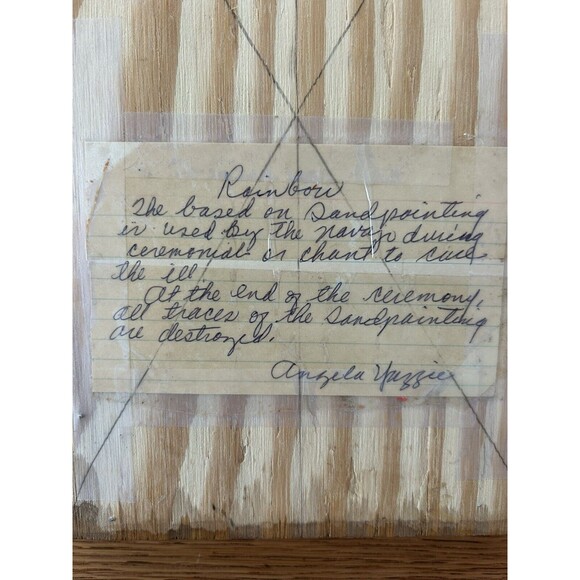 Rainbow
The based on Sandpainting
is used by the Navajo during
ceremonial or chant to cure
the ill.
At the end of the ceremony,
all traces of the Sandpainting
are destroyed.
Angela Yazzie